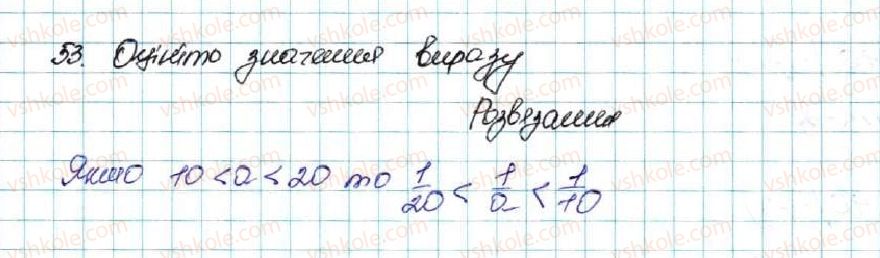 53. Оцініто значення виразу
Розвязання
Якшо 10 < a < 20 то 1/20 < 1/a < 1/10